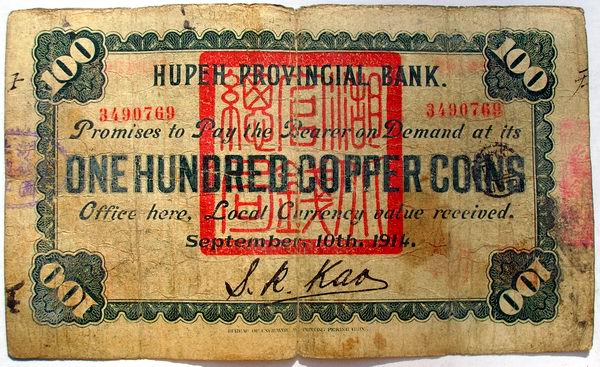 100 100
HUPEH PROVINCIAL BANK.
3490769 3490769
Promises to Pay the Bearer on Demand at its
ONE HUNDRED COPPER COINS
Office here, Local Currency value received.
September. 10th. 1914.
S. K. Kao
100 100
BUREAU OF ENGRAVING & PRINTING PEKING CHINA.